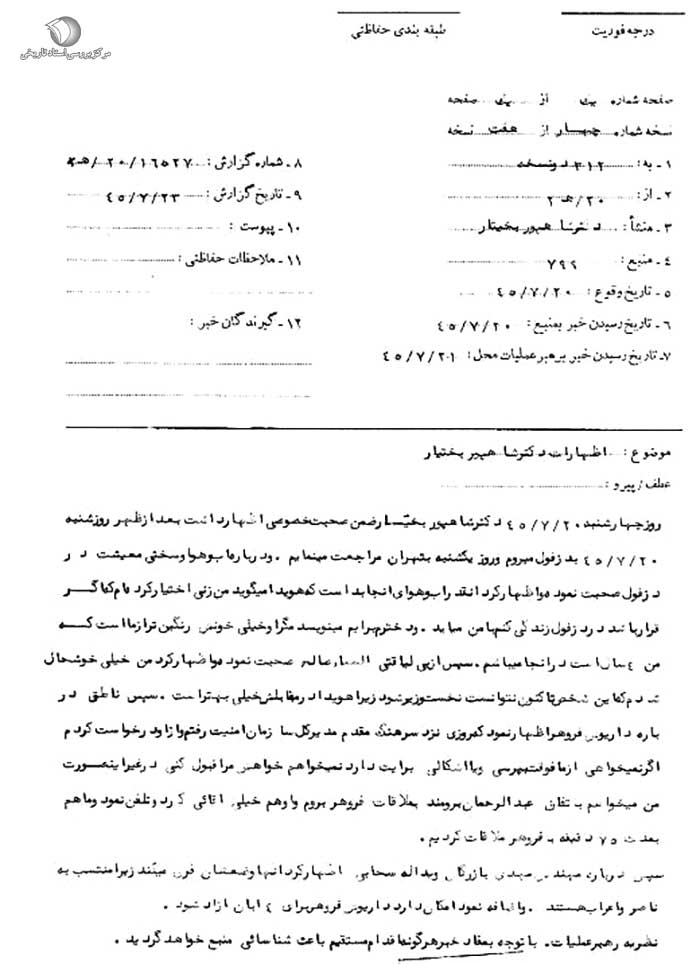 مرکز بررسی اسناد تاریخی
طبقه بندی حفاظتی
درجه فوریت
صفحه شماره یک از یک صفحه
نسخه شماره چهار از هفت نسخه
۱ـ به: ۳۱۲ دونسخه
۲ـ از: ۲۰/هـ ۲
۳ـ منشأ: دکترشاهپور بختیار
۴ـ منبع: ۷۹۹
۵ـ تاریخ وقوع: ۴۵/۷/۲۰
۶ـ تاریخ رسیدن خبر بمنبع: ۴۵/۷/۲۰
۷ـ تاریخ رسیدن خبر برهبر عملیات محل: ۴۵/۷/۲۱
۸ـ شماره گزارش: ۲۰/۱۶۵۲۷/هـ۲
۹ـ تاریخ گزارش: ۴۵/۷/۲۳
۱۰ـ پیوست:
۱۱ـ ملاحظات حفاظتی:
۱۲ـ گیرندگان خبر:
موضوع: اظهارات دکترشاهپور بختیار
عطف/پیرو:
روزچهارشنبه ۴۵/۷/۲۰ دکترشاهپور بختیار ضمن صحبت خصوصی اظهارداشت بعدازظهر روزشنبه
۴۵/۷/۲۰ بدزفول میروم وروز یکشنبه بتهران مراجعت مینمایم . ودرباره آب وهوا وسختی معیشت در
دزفول صحبت نمود و اظهارکرد انقدر آب وهوای انجا بد است که هویدا میگوید من زنی اختیارکرده ام که اگر
قرار باشد در دزفول زندگی کند با من میاید . ودخترم برایم مینویسد مگر او خیلی خونش رنگین تر از ما است که
من ۴ سال است در انجا میباشم . سپس از بی لیاقتی عالم صحبت نمود و اظهارکرد من خیلی خوشحال
شدم که این شخص تاکنون نتوانست نخست وزیر شود زیرا هویدا در مقابلش خیلی بهتر است . سپس ناطق در
باره داریوش فروهر اظهارنمود که روزی نزد سرهنگ مقدم مدیرکل سازمان امنیت رفتم و از او درخواست کردم
اگر نمیخواهی از مافوقت بپرسی ویا اشکالی برایت دارد نمیخواهم خواهش مرا قبول کنی درغیر اینصورت
من میخواهم باتفاق عبدالرحمان برومند بملاقات فروهر بروم واو هم خیلی اقائی کرد وتلفن نمود وما هم
بمدت ۷۵ دقیقه با فروهر ملاقات کردیم .
سپس درباره مهندس مهدی بازرگان ویداله سحابی اظهارکرد انها فرق میکنند زیرا منتسب به
ناصر واعراب هستند . واضافه نمود امکان دارد داریوش فروهر برای ۴ ابان ازاد شود .
نظریه رهبرعملیات . با توجه بمفاد خبر هرگونه اقدام مستقیم باعث شناسائی منبع خواهد گردید .